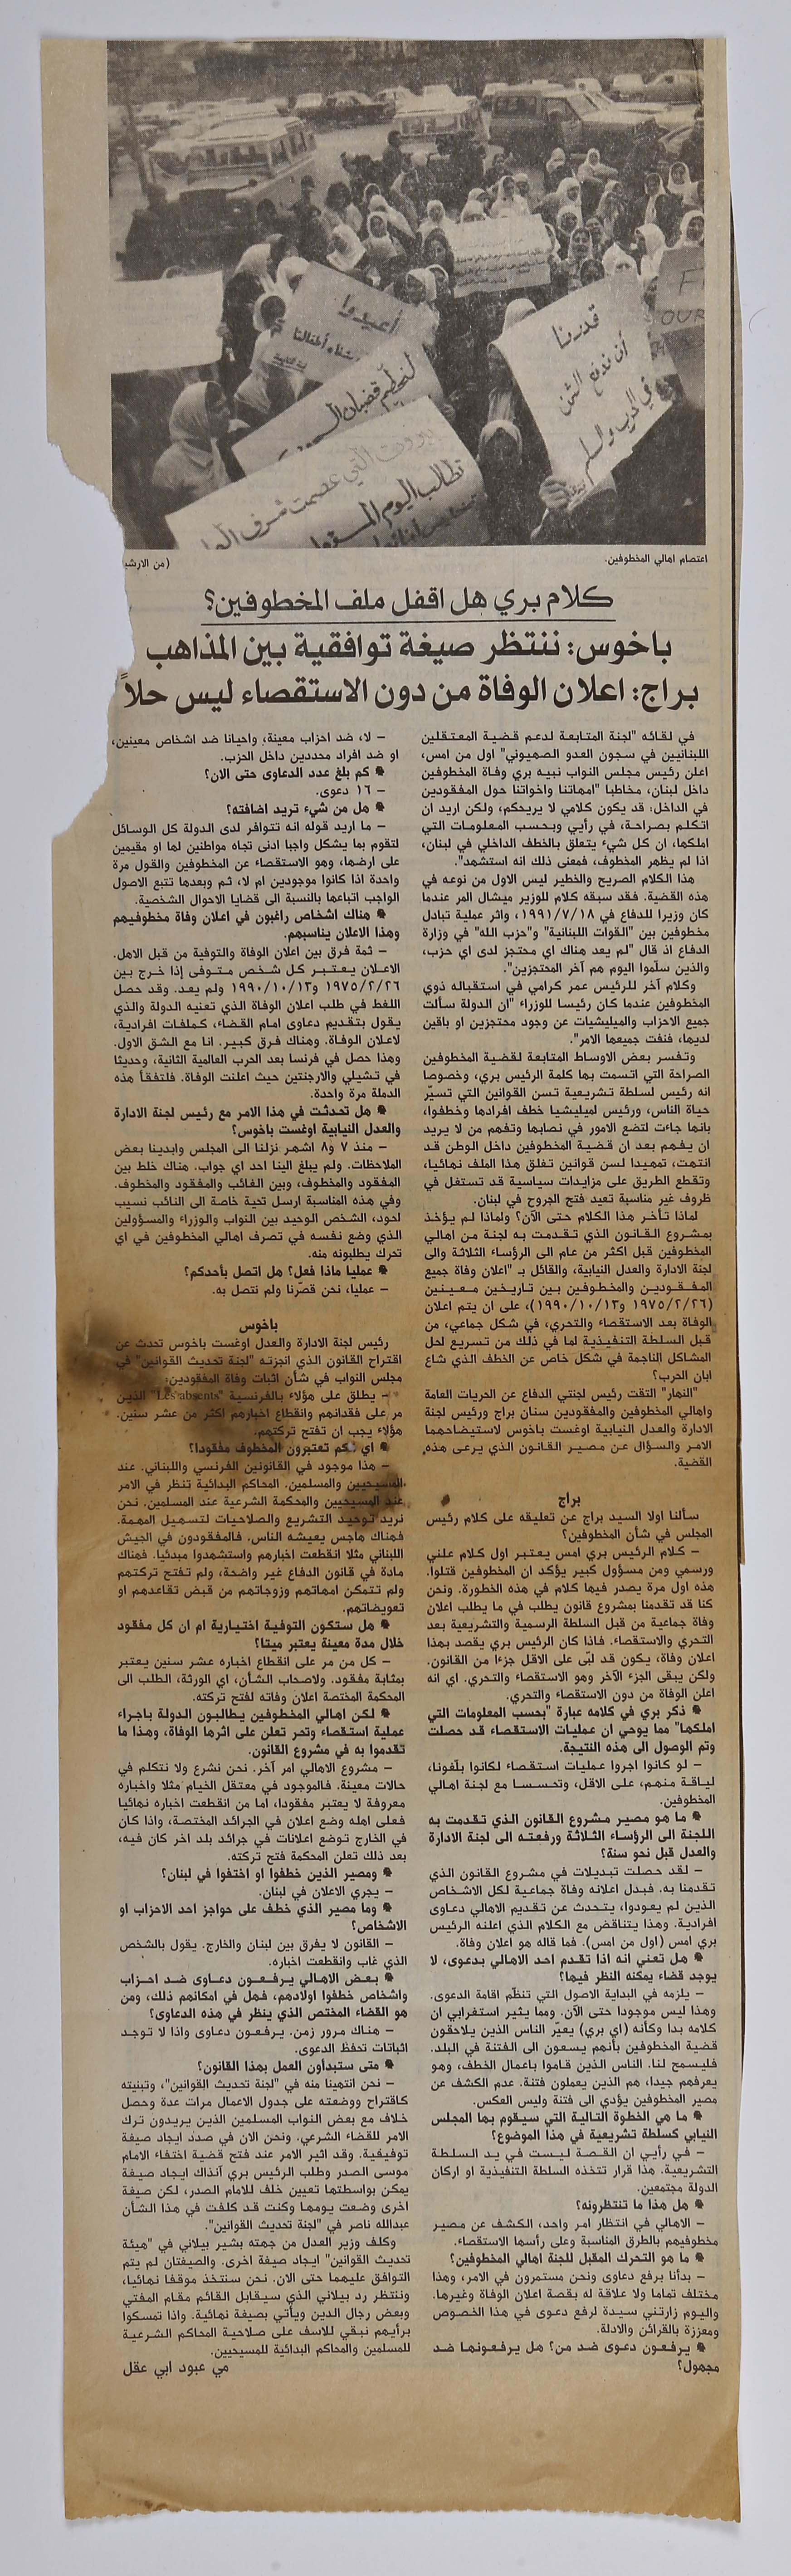 أعيدوا
قدرنا
أن ندفع الثمن
في الحرب والسلم
OUR
لنحطم قضبان
بيروت التي عصمت شرف
تطالب اليوم
اعتصام اهالي المخطوفين.
(من الارشي
كلام بري هل اقفل ملف المخطوفين؟
باخوس: ننتظر صيغة توافقية بين المذاهب
براج: اعلان الوفاة من دون الاستقصاء ليس حلاً
في لقائه "لجنة المتابعة لدعم قضية المعتقلين
اللبنانيين في سجون العدو الصهيوني" اول من امس،
اعلن رئيس مجلس النواب نبيه بري وفاة المخطوفين
داخل لبنان، مخاطبا "امهاتنا واخواتنا حول المفقودين
في الداخل: قد يكون كلامي لا يريحكم، ولكن اريد ان
اتكلم بصراحة، في رأيي وبحسب المعلومات التي
املكها، ان كل شيء يتعلق بالخطف الداخلي في لبنان،
اذا لم يظهر المخطوف، فمعنى ذلك انه استشهد".
هذا الكلام الصريح والخطير ليس الاول من نوعه في
هذه القضية. فقد سبقه كلام للوزير ميشال المر عندما
كان وزيرا للدفاع في ١٩٩١/٧/١٨، واثر عملية تبادل
مخطوفين بين "القوات اللبنانية" و"حزب الله" في وزارة
الدفاع اذ قال "لم يعد هناك اي محتجز لدى اي حزب،
والذين سلّموا اليوم هم آخر المحتجزين".
وكلام آخر للرئيس عمر كرامي في استقباله ذوي
المخطوفين عندما كان رئيسا للوزراء "ان الدولة سألت
جميع الاحزاب والميليشيات عن وجود محتجزين او باقين
لديها، فنفت جميعها الامر".
وتفسر بعض الاوساط المتابعة لقضية المخطوفين
الصراحة التي اتسمت بها كلمة الرئيس بري، وخصوصا
انه رئيس لسلطة تشريعية تسن القوانين التي تسيّر
حياة الناس، ورئيس لميليشيا خطف افرادها وخطفوا،
بانها جاءت لتضع الامور في نصابها وتفهم من لا يريد
ان يفهم بعد ان قضية المخطوفين داخل الوطن قد
انتهت، تمهيدا لسن قوانين تغلق هذا الملف نهائيا،
وتقطع الطريق على مزايدات سياسية قد تستغل في
ظروف غير مناسبة تعيد فتح الجروح في لبنان.
لماذا تأخر هذا الكلام حتى الآن؟ ولماذا لم يؤخذ
بمشروع القانون الذي تقدمت به لجنة من اهالي
المخطوفين قبل اكثر من عام الى الرؤساء الثلاثة والى
لجنة الادارة والعدل النيابية، والقائل بـ "اعلان وفاة جميع
المفقودين والمخطوفين بين تاريخين معينين
(١٩٧٥/٢/٢٦ و١٩٩٠/١٠/١٣)، على ان يتم اعلان
الوفاة بعد الاستقصاء والتحري، في شكل جماعي، من
قبل السلطة التنفيذية لما في ذلك من تسريع لحل
المشاكل الناجمة في شكل خاص عن الخطف الذي شاع
ابان الحرب؟
"النهار" التقت رئيس لجنتي الدفاع عن الحريات العامة
واهالي المخطوفين والمفقودين سنان براج ورئيس لجنة
الادارة والعدل النيابية اوغست باخوس لاستيضاحهما
الامر والسؤال عن مصير القانون الذي يرعى هذه
القضية.
براج
سألنا اولا السيد براج عن تعليقه على كلام رئيس
المجلس في شأن المخطوفين؟
– كلام الرئيس بري امس يعتبر اول كلام علني
ورسمي ومن مسؤول كبير يؤكد ان المخطوفين قتلوا.
هذه اول مرة يصدر فيها كلام في هذه الخطورة. ونحن
كنا قد تقدمنا بمشروع قانون يطلب في ما يطلب اعلان
وفاة جماعية من قبل السلطة الرسمية والتشريعية بعد
التحري والاستقصاء. فاذا كان الرئيس بري يقصد بهذا
اعلان وفاة، يكون قد لبّى على الاقل جزءا من القانون.
ولكن يبقى الجزء الآخر وهو الاستقصاء والتحري. اي انه
اعلن الوفاة من دون الاستقصاء والتحري.
● ذكر بري في كلامه عبارة "بحسب المعلومات التي
املكها" مما يوحي ان عمليات الاستقصاء قد حصلت
وتم الوصول الى هذه النتيجة.
– لو كانوا اجروا عمليات استقصاء لكانوا بلّغونا،
لياقة منهم، على الاقل، وتحسسا مع لجنة اهالي
المخطوفين.
● ما هو مصير مشروع القانون الذي تقدمت به
اللجنة الى الرؤساء الثلاثة ورفعته الى لجنة الادارة
والعدل قبل نحو سنة؟
– لقد حصلت تبديلات في مشروع القانون الذي
تقدمنا به. فبدل اعلانه وفاة جماعية لكل الاشخاص
الذين لم يعودوا، يتحدث عن تقديم الاهالي دعاوى
افرادية. وهذا يتناقض مع الكلام الذي اعلنه الرئيس
بري امس (اول من امس). فما قاله هو اعلان وفاة.
● هل تعني انه اذا تقدم احد الاهالي بدعوى، لا
يوجد قضاء يمكنه النظر فيها؟
– يلزمه في البداية الاصول التي تنظّم اقامة الدعوى.
وهذا ليس موجودا حتى الآن. ومما يثير استغرابي ان
كلامه بدا وكأنه (اي بري) يعيّر الناس الذين يلاحقون
قضية المخطوفين بأنهم يسعون الى الفتنة في البلد.
فليسمح لنا. الناس الذين قاموا باعمال الخطف، وهو
يعرفهم جيدا، هم الذين يعملون فتنة. عدم الكشف عن
مصير المخطوفين يؤدي الى فتنة وليس العكس.
● ما هي الخطوة التالية التي سيقوم بها المجلس
النيابي كسلطة تشريعية في هذا الموضوع؟
– في رأيي ان القصة ليست في يد السلطة
التشريعية. هذا قرار تتخذه السلطة التنفيذية او اركان
الدولة مجتمعين.
● هل هذا ما تنتظرونه؟
– الاهالي في انتظار امر واحد، الكشف عن مصير
مخطوفيهم بالطرق المناسبة وعلى رأسها الاستقصاء.
● ما هو التحرك المقبل للجنة اهالي المخطوفين؟
– بدأنا برفع دعاوى ونحن مستمرون في الامر، وهذا
مختلف تماما ولا علاقة له بقصة اعلان الوفاة وغيرها.
واليوم زارتني سيدة لرفع دعوى في هذا الخصوص
ومعززة بالقرائن والادلة.
● يرفعون دعوى ضد من؟ هل يرفعونها ضد
مجهول؟
– لا، ضد احزاب معينة، واحيانا ضد اشخاص معينين،
او ضد افراد محددين داخل الحزب.
● كم بلغ عدد الدعاوى حتى الان؟
– ١٦ دعوى.
● هل من شيء تريد اضافته؟
– ما اريد قوله انه تتوافر لدى الدولة كل الوسائل
لتقوم بما يشكل واجبا ادنى تجاه مواطنين لها او مقيمين
على ارضها، وهو الاستقصاء عن المخطوفين والقول مرة
واحدة اذا كانوا موجودين ام لا، ثم وبعدها تتبع الاصول
الواجب اتباعها بالنسبة الى قضايا الاحوال الشخصية.
● هناك اشخاص راغبون في اعلان وفاة مخطوفيهم
وهذا الاعلان يناسبهم.
– ثمة فرق بين اعلان الوفاة والتوفية من قبل الاهل.
الاعلان يعتبر كل شخص متوفى إذا خرج بين
١٩٧٥/٢/٢٦ و١٩٩٠/١٠/١٣ ولم يعد. وقد حصل
اللغط في طلب اعلان الوفاة الذي تعنيه الدولة والذي
يقول بتقديم دعاوى امام القضاء، كملفات افرادية،
لاعلان الوفاة. وهناك فرق كبير. انا مع الشق الاول.
وهذا حصل في فرنسا بعد الحرب العالمية الثانية، وحديثا
في تشيلي والارجنتين حيث اعلنت الوفاة. فلتفقأ هذه
الدملة مرة واحدة.
● هل تحدثت في هذا الامر مع رئيس لجنة الادارة
والعدل النيابية اوغست باخوس؟
– منذ ٧ و٨ اشهر نزلنا الى المجلس وابدينا بعض
الملاحظات. ولم يبلغ الينا احد اي جواب. هناك خلط بين
المفقود والمخطوف، وبين الغائب والمفقود والمخطوف.
وفي هذه المناسبة ارسل تحية خاصة الى النائب نسيب
لحود، الشخص الوحيد بين النواب والوزراء والمسؤولين
الذي وضع نفسه في تصرف اهالي المخطوفين في اي
تحرك يطلبونه منه.
● عمليا ماذا فعل؟ هل اتصل بأحدكم؟
– عمليا، نحن قصّرنا ولم نتصل به.
باخوس
رئيس لجنة الادارة والعدل اوغست باخوس تحدث عن
اقتراح القانون الذي انجزته "لجنة تحديث القوانين" في
مجلس النواب في شأن اثبات وفاة المفقودين:
– يطلق على هؤلاء بالفرنسية "Les absents" الذين
مر على فقدانهم وانقطاع اخبارهم اكثر من عشر سنين.
هؤلاء يجب ان تفتح تركتهم.
● اي حكم تعتبرون المخطوف مفقودا؟
– هذا موجود في القانونين الفرنسي واللبناني. عند
المسيحيين والمسلمين. المحاكم البدائية تنظر في الامر
عند المسيحيين والمحكمة الشرعية عند المسلمين. نحن
نريد توحيد التشريع والصلاحيات لتسهيل المهمة.
فهناك هاجس يعيشه الناس. فالمفقودون في الجيش
اللبناني مثلا انقطعت اخبارهم واستشهدوا مبدئيا. فهناك
مادة في قانون الدفاع غير واضحة، ولم تفتح تركتهم
ولم تتمكن امهاتهم وزوجاتهم من قبض تقاعدهم او
تعويضاتهم.
● هل ستكون التوفية اختيارية ام ان كل مفقود
خلال مدة معينة يعتبر ميتا؟
– كل من مر على انقطاع اخباره عشر سنين يعتبر
بمثابة مفقود. ولاصحاب الشأن، اي الورثة، الطلب الى
المحكمة المختصة اعلان وفاته لفتح تركته.
● لكن اهالي المخطوفين يطالبون الدولة باجراء
عملية استقصاء وتحر تعلن على اثرها الوفاة، وهذا ما
تقدموا به في مشروع القانون.
– مشروع الاهالي امر آخر. نحن نشرع ولا نتكلم في
حالات معينة. فالموجود في معتقل الخيام مثلا واخباره
معروفة لا يعتبر مفقودا، اما من انقطعت اخباره نهائيا
فعلى اهله وضع اعلان في الجرائد المختصة، واذا كان
في الخارج توضع اعلانات في جرائد بلد اخر كان فيه،
بعد ذلك تعلن المحكمة فتح تركته.
● ومصير الذين خطفوا او اختفوا في لبنان؟
– يجري الاعلان في لبنان.
● وما مصير الذي خطف على حواجز احد الاحزاب او
الاشخاص؟
– القانون لا يفرق بين لبنان والخارج. يقول بالشخص
الذي غاب وانقطعت اخباره.
● بعض الاهالي يرفعون دعاوى ضد احزاب
واشخاص خطفوا اولادهم، فهل في امكانهم ذلك، ومن
هو القضاء المختص الذي ينظر في هذه الدعاوى؟
– هناك مرور زمن. يرفعون دعاوى واذا لا توجد
اثباتات تحفظ الدعوى.
● متى ستبدأون العمل بهذا القانون؟
– نحن انتهينا منه في "لجنة تحديث القوانين"، وتبنيته
كاقتراح ووضعته على جدول الاعمال مرات عدة وحصل
خلاف مع بعض النواب المسلمين الذين يريدون ترك
الامر للقضاء الشرعي. ونحن الان في صدد ايجاد صيغة
توفيقية. وقد اثير الامر عند فتح قضية اختفاء الامام
موسى الصدر وطلب الرئيس بري آنذاك ايجاد صيغة
يمكن بواسطتها تعيين خلف للامام الصدر، لكن صيغة
اخرى وضعت يومها وكنت قد كلفت في هذا الشأن
عبدالله ناصر في "لجنة تحديث القوانين".
وكلف وزير العدل من جهته بشير بيلاني في "هيئة
تحديث القوانين" ايجاد صيغة اخرى. والصيغتان لم يتم
التوافق عليهما حتى الان. نحن سنتخذ موقفا نهائيا،
وننتظر رد بيلاني الذي سيقابل القائم مقام المفتي
وبعض رجال الدين ويأتي بصيغة نهائية. واذا تمسكوا
برأيهم نبقي للاسف على صلاحية المحاكم الشرعية
للمسلمين والمحاكم البدائية للمسيحيين.
مي عبود ابي عقل